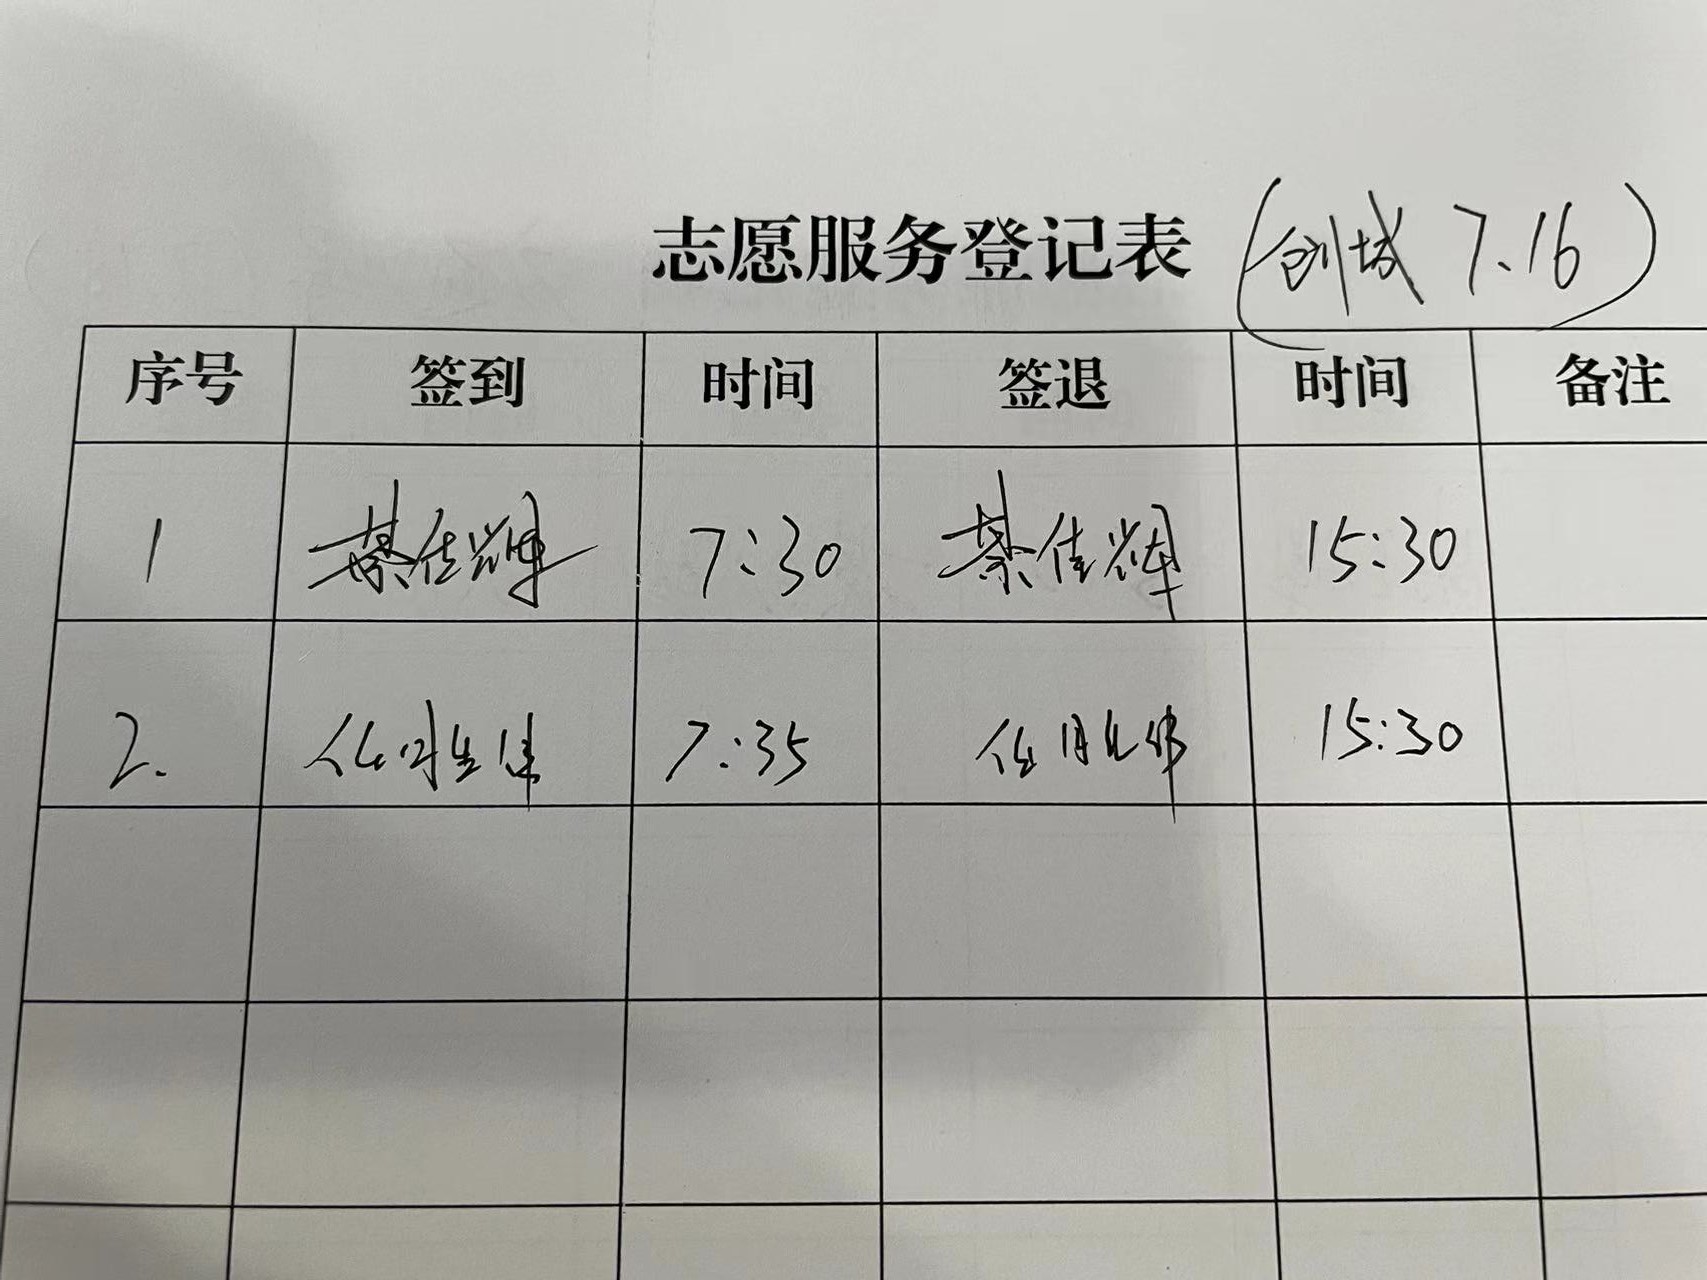 志愿服务登记表 (创城 7.16)
序号 签到 时间 签退 时间 备注
1 蔡佳辉 7:30 蔡佳辉 15:30
2. 7:35 15:30